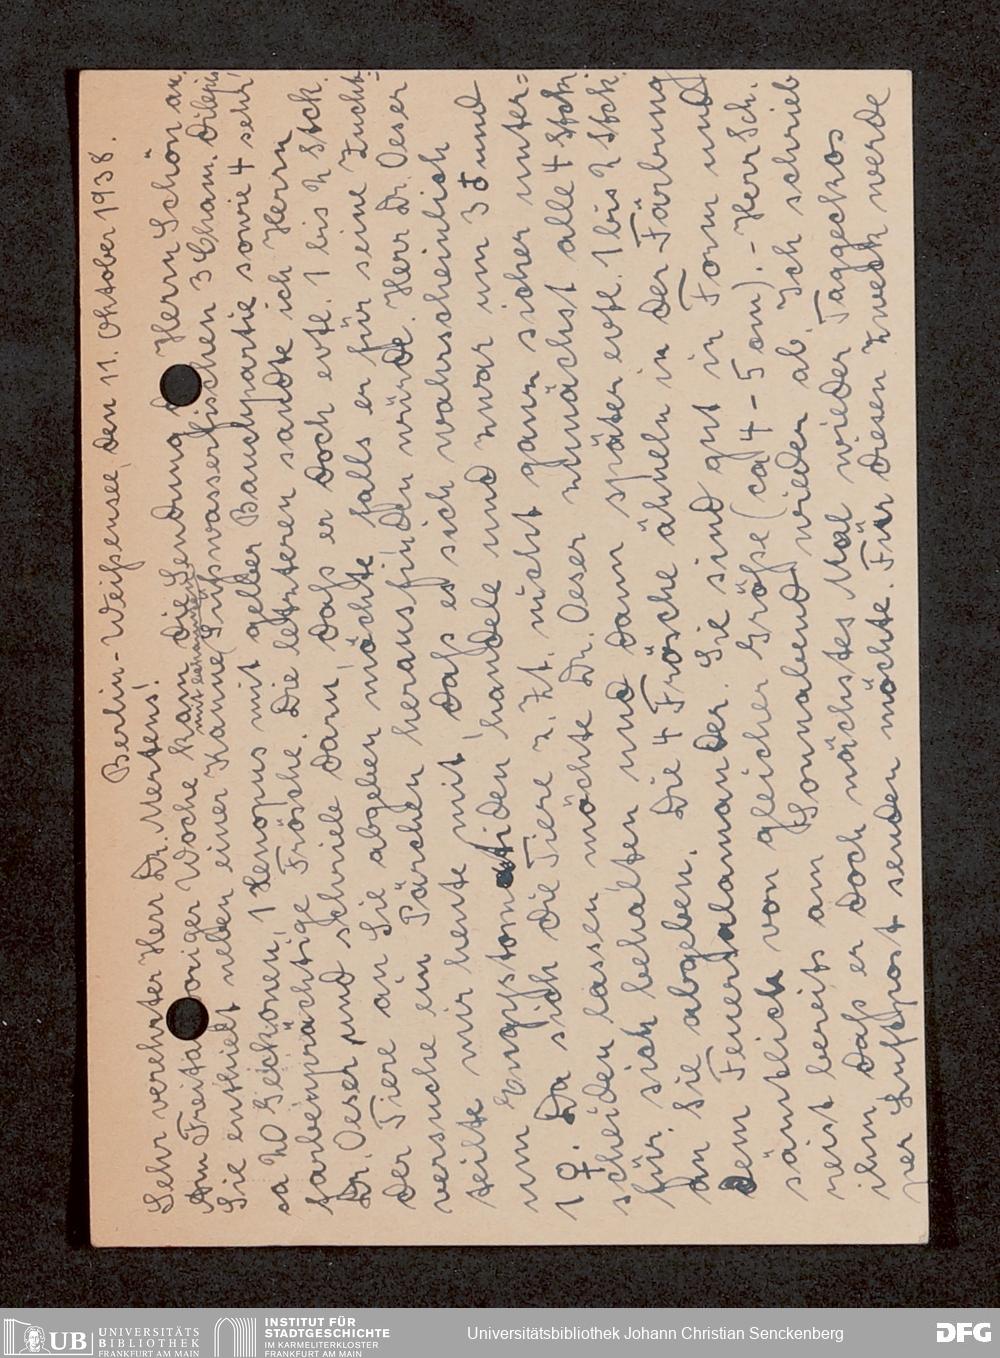 Berlin-Weißensee, den 11. Oktober 1938.
Sehr verehrter Herr Dr. Mertens!
Am Freitag voriger Woche kam die Sendung d. Herrn Schön an.
Sie enthielt neben einer Kanne (mit Süßwasserfischen 3 Cham. Dilepis
ca 20 Geckonen, 1 Xenopus mit gelber Bauchpartie sowie 4 sehr
farbenprächtige Frösche. Die letzteren sandte ich Herrn
Dr. Oeser und schrieb dazu, daß er doch evtl. 1 bis 2 Stck.
der Tiere an Sie abgeben möchte falls er für seine Zucht=
versuche ein Pärchen herausfinden würde. Herr Dr. Oeser
teilte mir heute mit, daß es sich wahrscheinlich
um Engystomatiden handele und zwar um 3 ♂ und
1 ♀. Da sich die Tiere z. Zt. nicht ganz sicher unter=
scheiden lassen möchte Dr. Oeser zunächst alle 4 Stck.
für sich behalten und dann später evtl. 1 bis 2 Stck.
an Sie abgeben. Die 4 Frösche ähneln in der Färbung
dem Feuersalamander. Sie sind gut in Form und
sämtlich von gleicher Größe (ca 4-5 cm). - Herr Sch.
reist bereits am Sonnabend wieder ab. Ich schrieb
ihm daß er doch nächstes Mal wieder Taggeckos
per Luftpost senden möchte. Für diesen Zweck werde
UB UNIVERSITÄTS
BIBLIOTHEK
FRANKFURT AM MAIN
INSTITUT FÜR
STADTGESCHICHTE
IM KARMELITERKLOSTER
FRANKFURT AM MAIN
Universitätsbibliothek Johann Christian Senckenberg
DFG